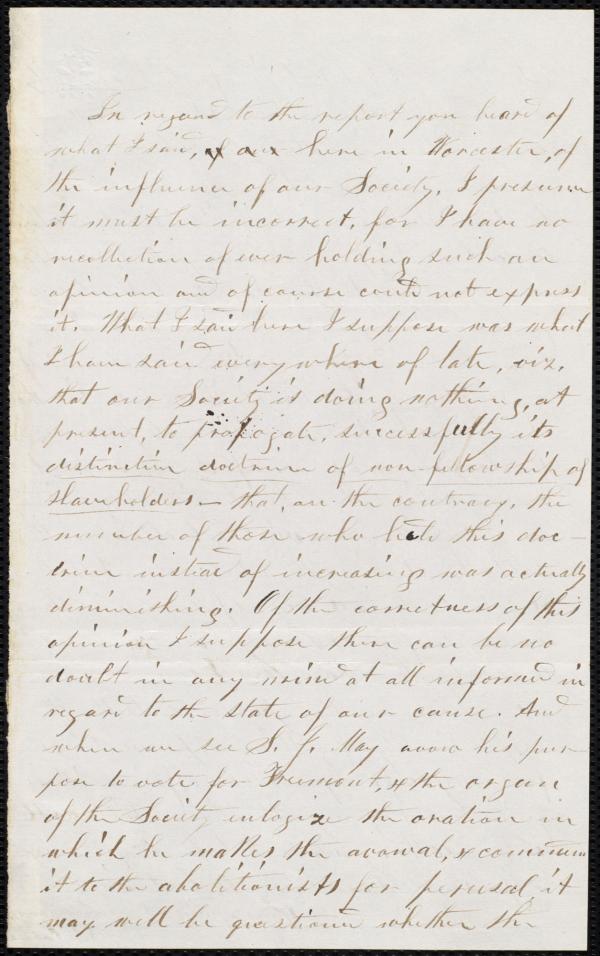 In regard to the report you heard of
what I said, here in Worcester, of
the influence of our Society, I presume
it must be incorrect, for I have no
recollection of ever holding such an
opinion and of course could not express
it. What I said here I suppose was what
I have said everywhere of late, viz.
that our Society is doing nothing, at
present, to propogate, successfully its
distinctive doctrine of non-fellowship of
slaveholders — that, on the contrary, the
number of those who hold this doc-
trine instead of increasing was actually
diminishing. Of the correctness of this
opinion I suppose there can be no
doubt in any mind at all informed in
regard to the state of our cause. And
when we see S. J. May avow his pur-
pose to vote for Fremont, & the organ
of the Society eulogize the oration in
which he makes the avowal, & commend
it to the abolitionists for perusal, it
may well be questioned whether the